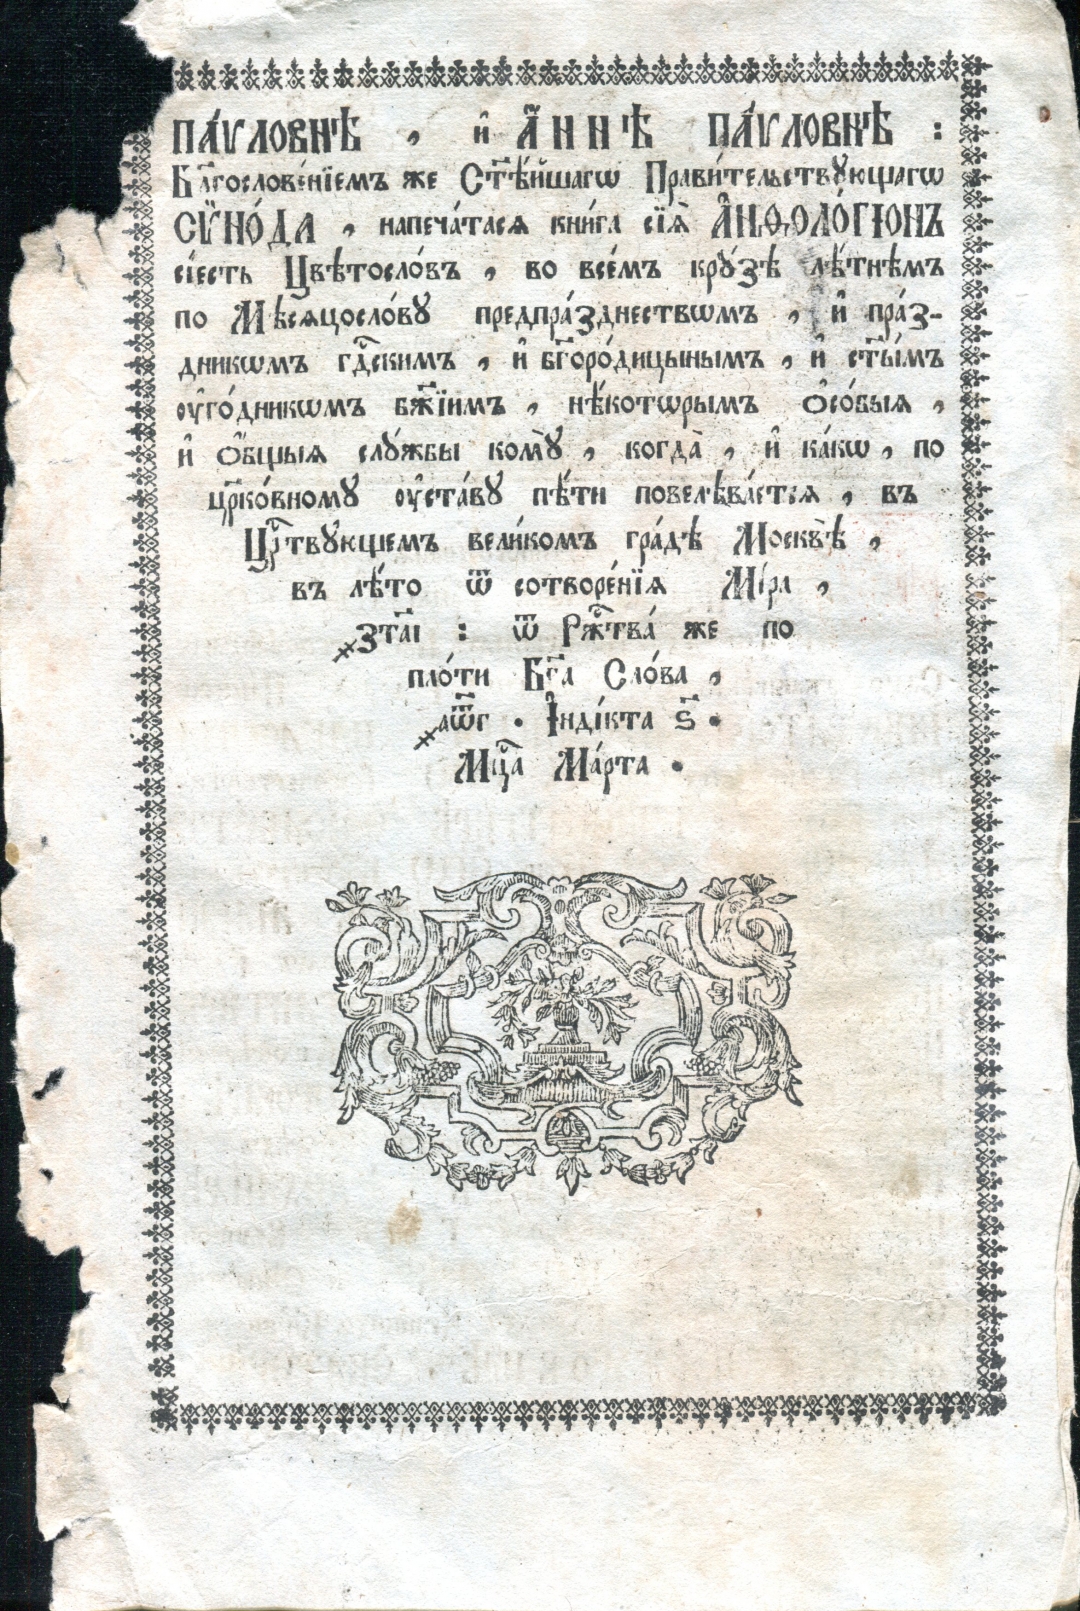 ПА́ѴЛОВНѢ , и҆ А҆́ННѢ ПА́ѴЛОВНѢ :
Бл҃гослове́нїемъ же Ст҃ѣ́йшагѡ Прави́тельствꙋющагѡ
СѴНО́ДА , напеча́тасѧ кни́га сїѧ̀ А҆НѲОЛО́ГІОНЪ
сіе́сть Цвѣтосло́въ , во все́мъ крꙋ́зѣ лѣ́тнѣмъ
по Мѣсѧцосло́вꙋ предпра́зднествѡмъ , и҆ пра́з-
дникѡмъ гдⷭ҇кимъ , и҆ бг҃оро́дицынымъ , и҆ ст҃ы́мъ
ᲂу҆го́дникѡмъ бж҃їимъ , нѣ́котѡрымъ ѻ҆со́быѧ ,
и҆ ѻ҆́бщыѧ слꙋ́жбы комꙋ̀ , когда̀ , и҆ ка́кѡ , по
цр҃ко́вномꙋ ᲂу҆ста́вꙋ пѣ́ти повелѣва́етсѧ , въ
Црⷭ҇твꙋющемъ вели́комъ гра́дѣ Москвѣ̀ ,
въ лѣ́то ѿ сотворе́нїѧ Мі́ра ,
҂зт҃аі : ѿ Ржⷭ҇тва́ же по
пло́ти Бг҃а Сло́ва ,
҂аѿ҃г . І҆нді́кта ѕ҃ .
Мцⷭ҇а Ма́рта .